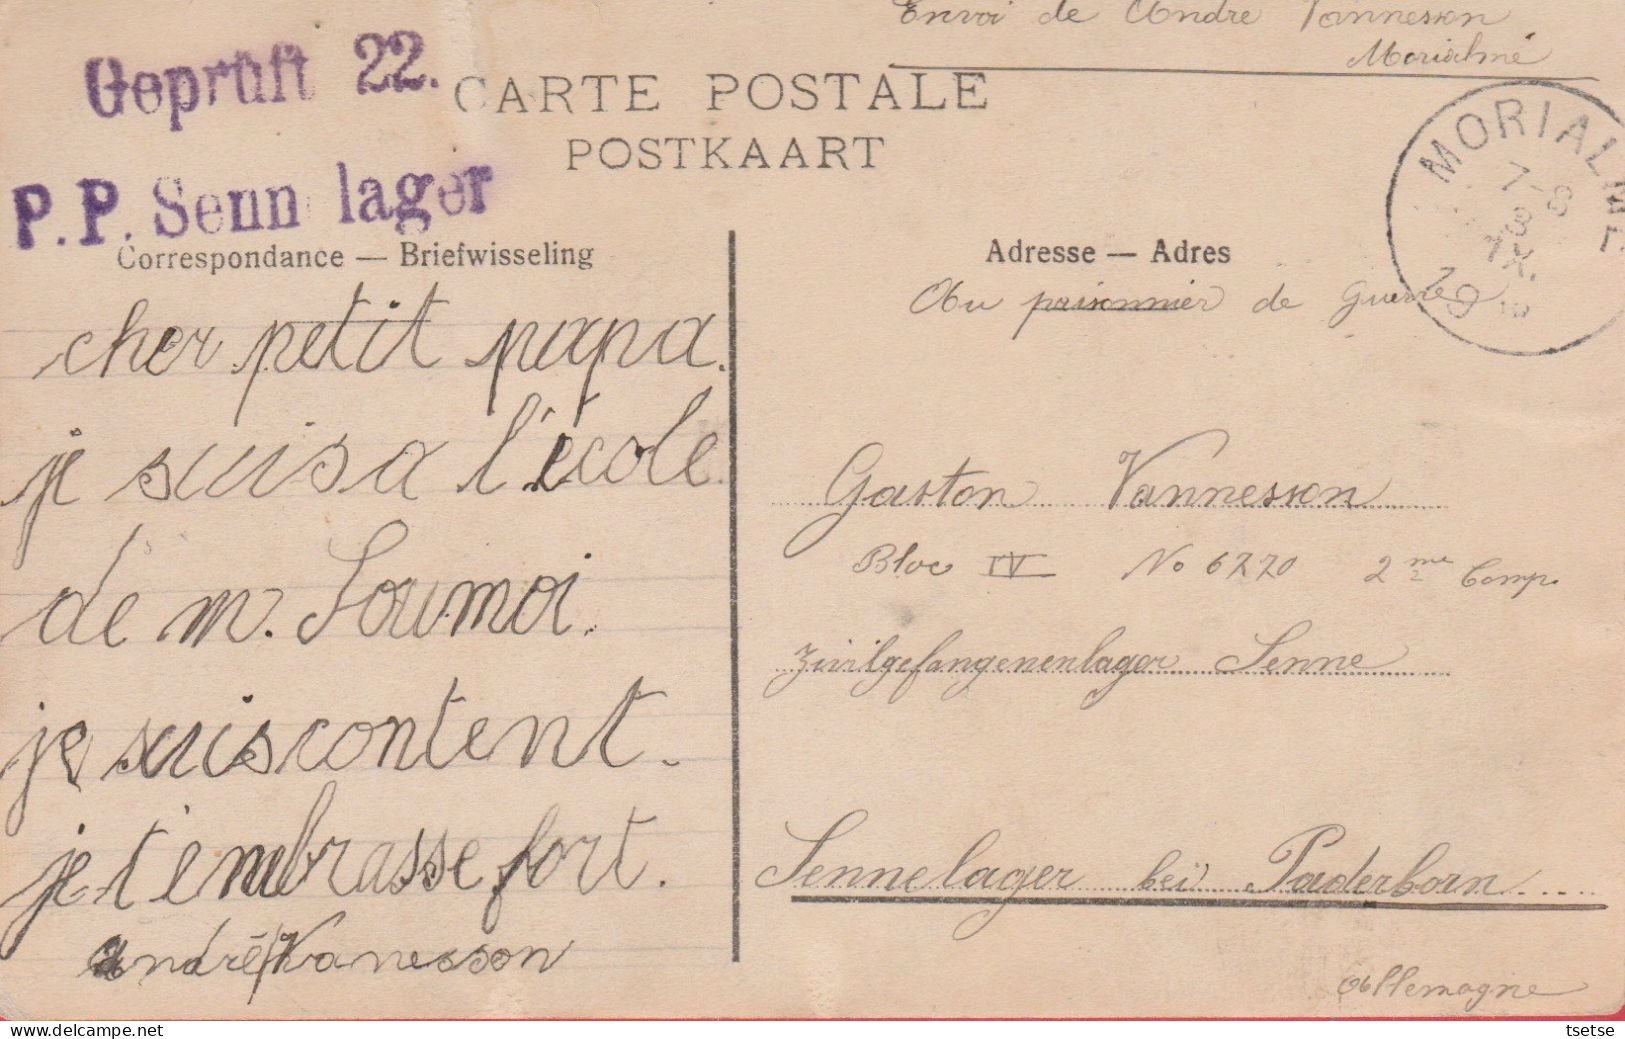 Envoi de Andre Vannesson
Morialmé
Geprüft 22.
CARTE POSTALE
POSTKAART
P.P. Senn lager
MORIALMÉ
7-8
8
IX.
19
Correspondance — Briefwisseling
Adresse — Adres
Au prisonnier de Guerre
cher petit papa.
je suis a l'école
de m. Soumoi.
je suis content.
je t'embrasse fort.
andré Vanesson
Gaston Vannesson
Bloc IV No 6220 2me Comp.
Zivilgefangenenlager Senne
Sennelager bei Paderborn
Allemagne
tsetse